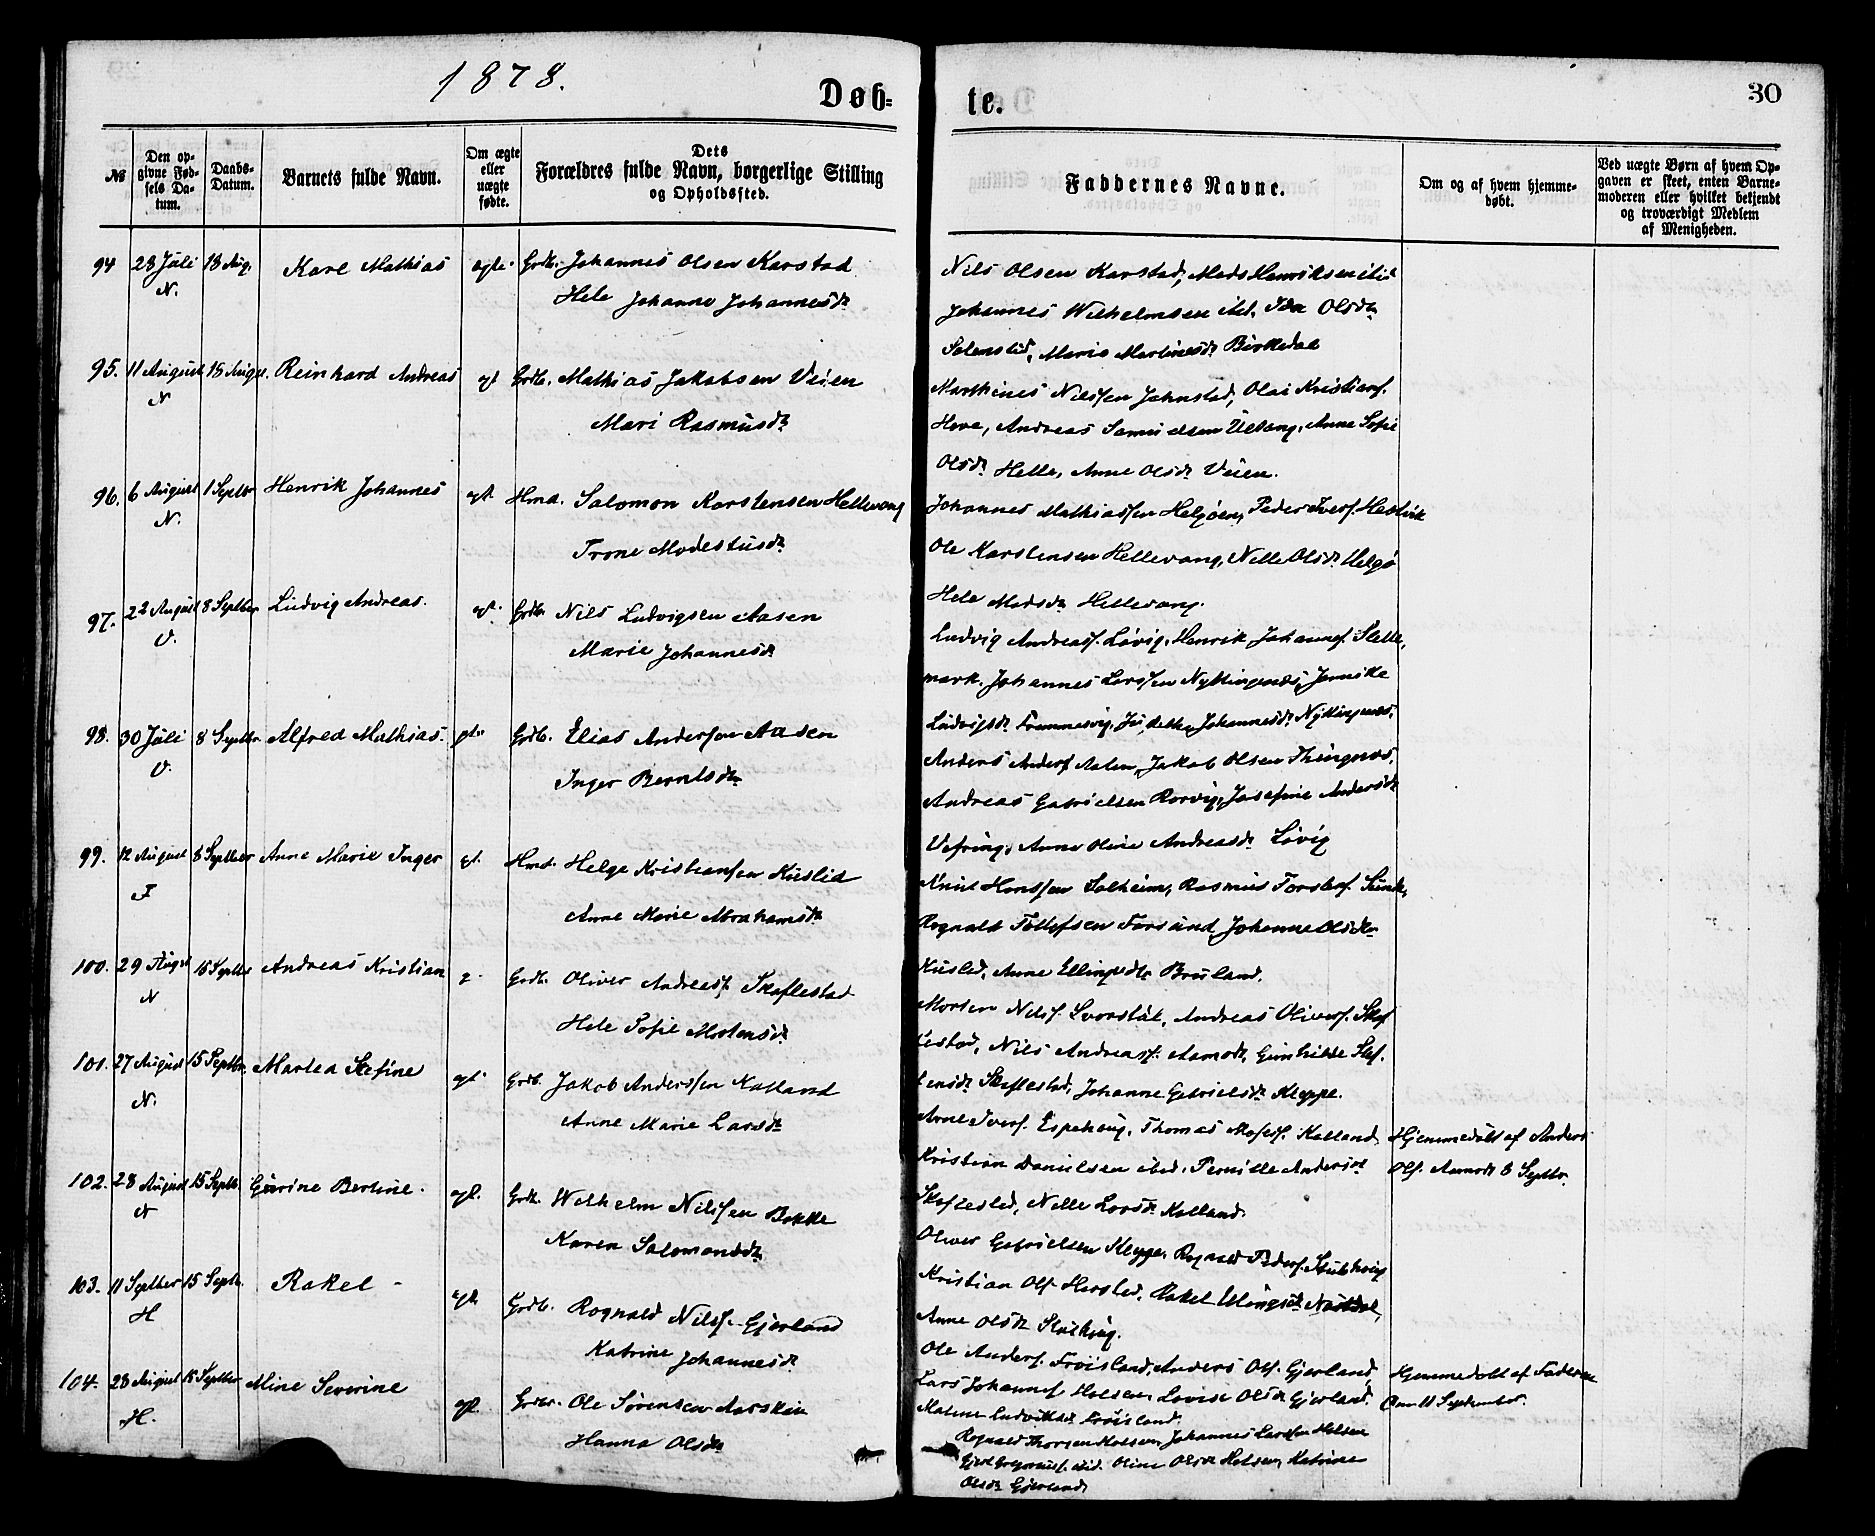 1878.
Døb=
te.
30
№
Den op-
givne Fød-
sels Da-
tum.
Daabs-
Datum.
Barnets fulde Navn.
Om ægte
eller
uægte
fødte.
Dets
Forældres fulde Navn, borgerlige Stilling
og Opholdssted.
Faddernes Navne.
Om og af hvem hjemme-
døbt.
Ved uægte Børn af hvem Op-
gaven er skeet, enten Barne-
moderen eller hvilket bekjendt
og troværdigt Medlem
af Menigheden.
94 28 Juli 18 Aug. Karl Mathias ægte Grdb. Johannes Olsen Karstad
N. Hele Johanne Johannesdr
Nils Olsen Karstad, Mads Henriksen ibid
Johannes Wilhelmsen ibd. Ida Olsdr
Solenslid, Marie Martinusdr Birkedal
95. 11 August 18 August. Reinhard Andreas ægt Grdb. Mathias Jakobsen Veien
N Mari Rasmusdr
Marthinus Nilssen Jahnstad, Olai Kristians.
Hove, Andreas Samuelsen Ullvang, Anne Sofie
Olsdr Helle, Anne Olsdr Veien.
96. 6 August 1 Septbr Henrik Johannes ægt. Hmd. Salomon Karstensen Hellevang
N. Trone Modestusdr
Johannes Mathiassen Helgøen, Peder Ivers. Hestvik
Ole Karstensen Hellevang, Nille Olsdr Helgø
Hele Madsdr Hellevang.
97. 22 August 8 Septber Ludvig Andreas. ægt. Grdb. Nils Ludvigsen Aasen
V. Marie Johannesdr
Ludvig Andreass. Løvig, Henrik Johannes. Slette,
mark, Johannes Larssen Nyttingenæs, Jensike
Ludvigsdr Frammesvig, Johannesdr Nyttingenæs.
98. 30 Juli 8 Septbr. Alfred Mathias. Grdb. Elias Anderssen Aasen
V. Inger Berntsdr
Anders Anders. Aalen, Jakob Olsen Thingnæs,
Andreas Gabrielsen Rørvig, Josefine Andersdr
Vefring, Anne Oline Andreasdr Løvig
99. 12 August 8 Septber Anne Marie Inger Hmd. Helge Kristianssen Kuslid
F Anne Marie Abrahamsdr
Knut Hanssen Solheim, Rasmus
Rognald Tollefsen Førsund, Johanne Olsdr
Kuslid, Anne Ellingsdr Bruland.
100. 29 August 15 Septbr Andreas Kristian Grdb. Oliver Andreass. Skaflestad
N Hele Sofie Mortensdr
Morten Nils. Svorstøl, Andreas Olivers. Skaf
lestad, Nils Andreass. Aamodt, Gunhilde Stef.
fensdr Skaflestad, Johanne Gabrielsdr Kleppe.
101. 27 August 15 Septbr. Martea Stefine ægt. Grdb. Jakob Anderssen Kalland
N. Anne Marie Larsdr
Arne Ivers. Espehaug, Thomas Moses. Kalland,
Kristian Danielsen ibid. Pernille Andersdr
Skaflestad, Nille Larsdr Kalland.
Hjemmedøbt af Anders
Ols. Aamodt 6 Septbr.
102. 28 August 15 Septb. Gurine Bertine. ægt. Grdb. Wilhelm Nilssen Bakke
N Karen Salomonsdr
Oliver Gabrielsen Kleppe, Rognald Peders.
Kristian Ols. Herstad, Rakel Ellingsdr
Anne Olsdr
103. 11 Septber 15 Septb. Rakel - ægt. Grdb. Rognald Nils. Gjerland
H Katrine Johannesdr
Ole Anders. Frøisland, Anders Ols. Gjerland,
Lars Johannes. Holsen, Lovise Olsdr Gjerland.
Malene Ludviksdr Frøisland.
Hjemmedøbt af Faderen
den 11 September.
104. 28 August 15 Septber Mine Severine ægt. Grdbr. Ole Sørensen Aarskin
H. Hanna Olsdr
Rognald Thorsen Holsen, Johannes Larssen Holsen
ibid. Oline Olsdr Holsen, Katrine
Olsdr Gjerland